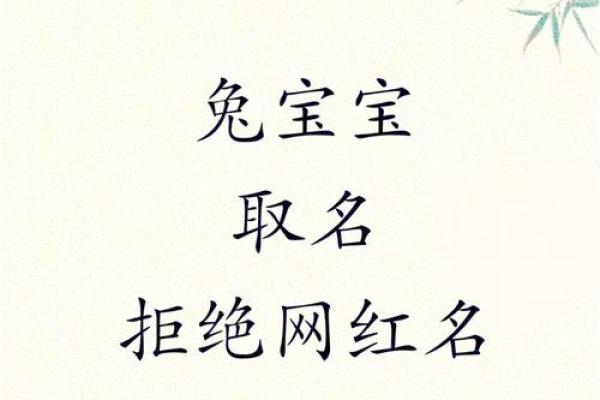 兔宝宝
取名
拒绝网红名